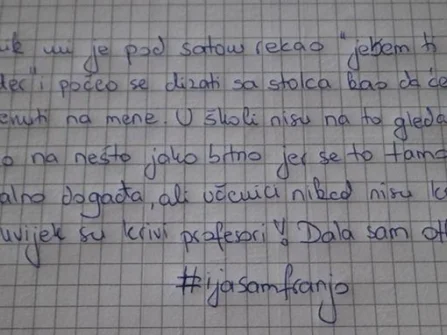 mi je pod satom rekao "jebem ti
i počeo se dizati sa stolca kao da će
na mene. U školi nisu na to gleda
na nešto jako bitno jer se to tamo
alno događa, ali učenici nikad nisu k
uvijek su krivi profesori! Dala sam ot
#ijasamfranjo